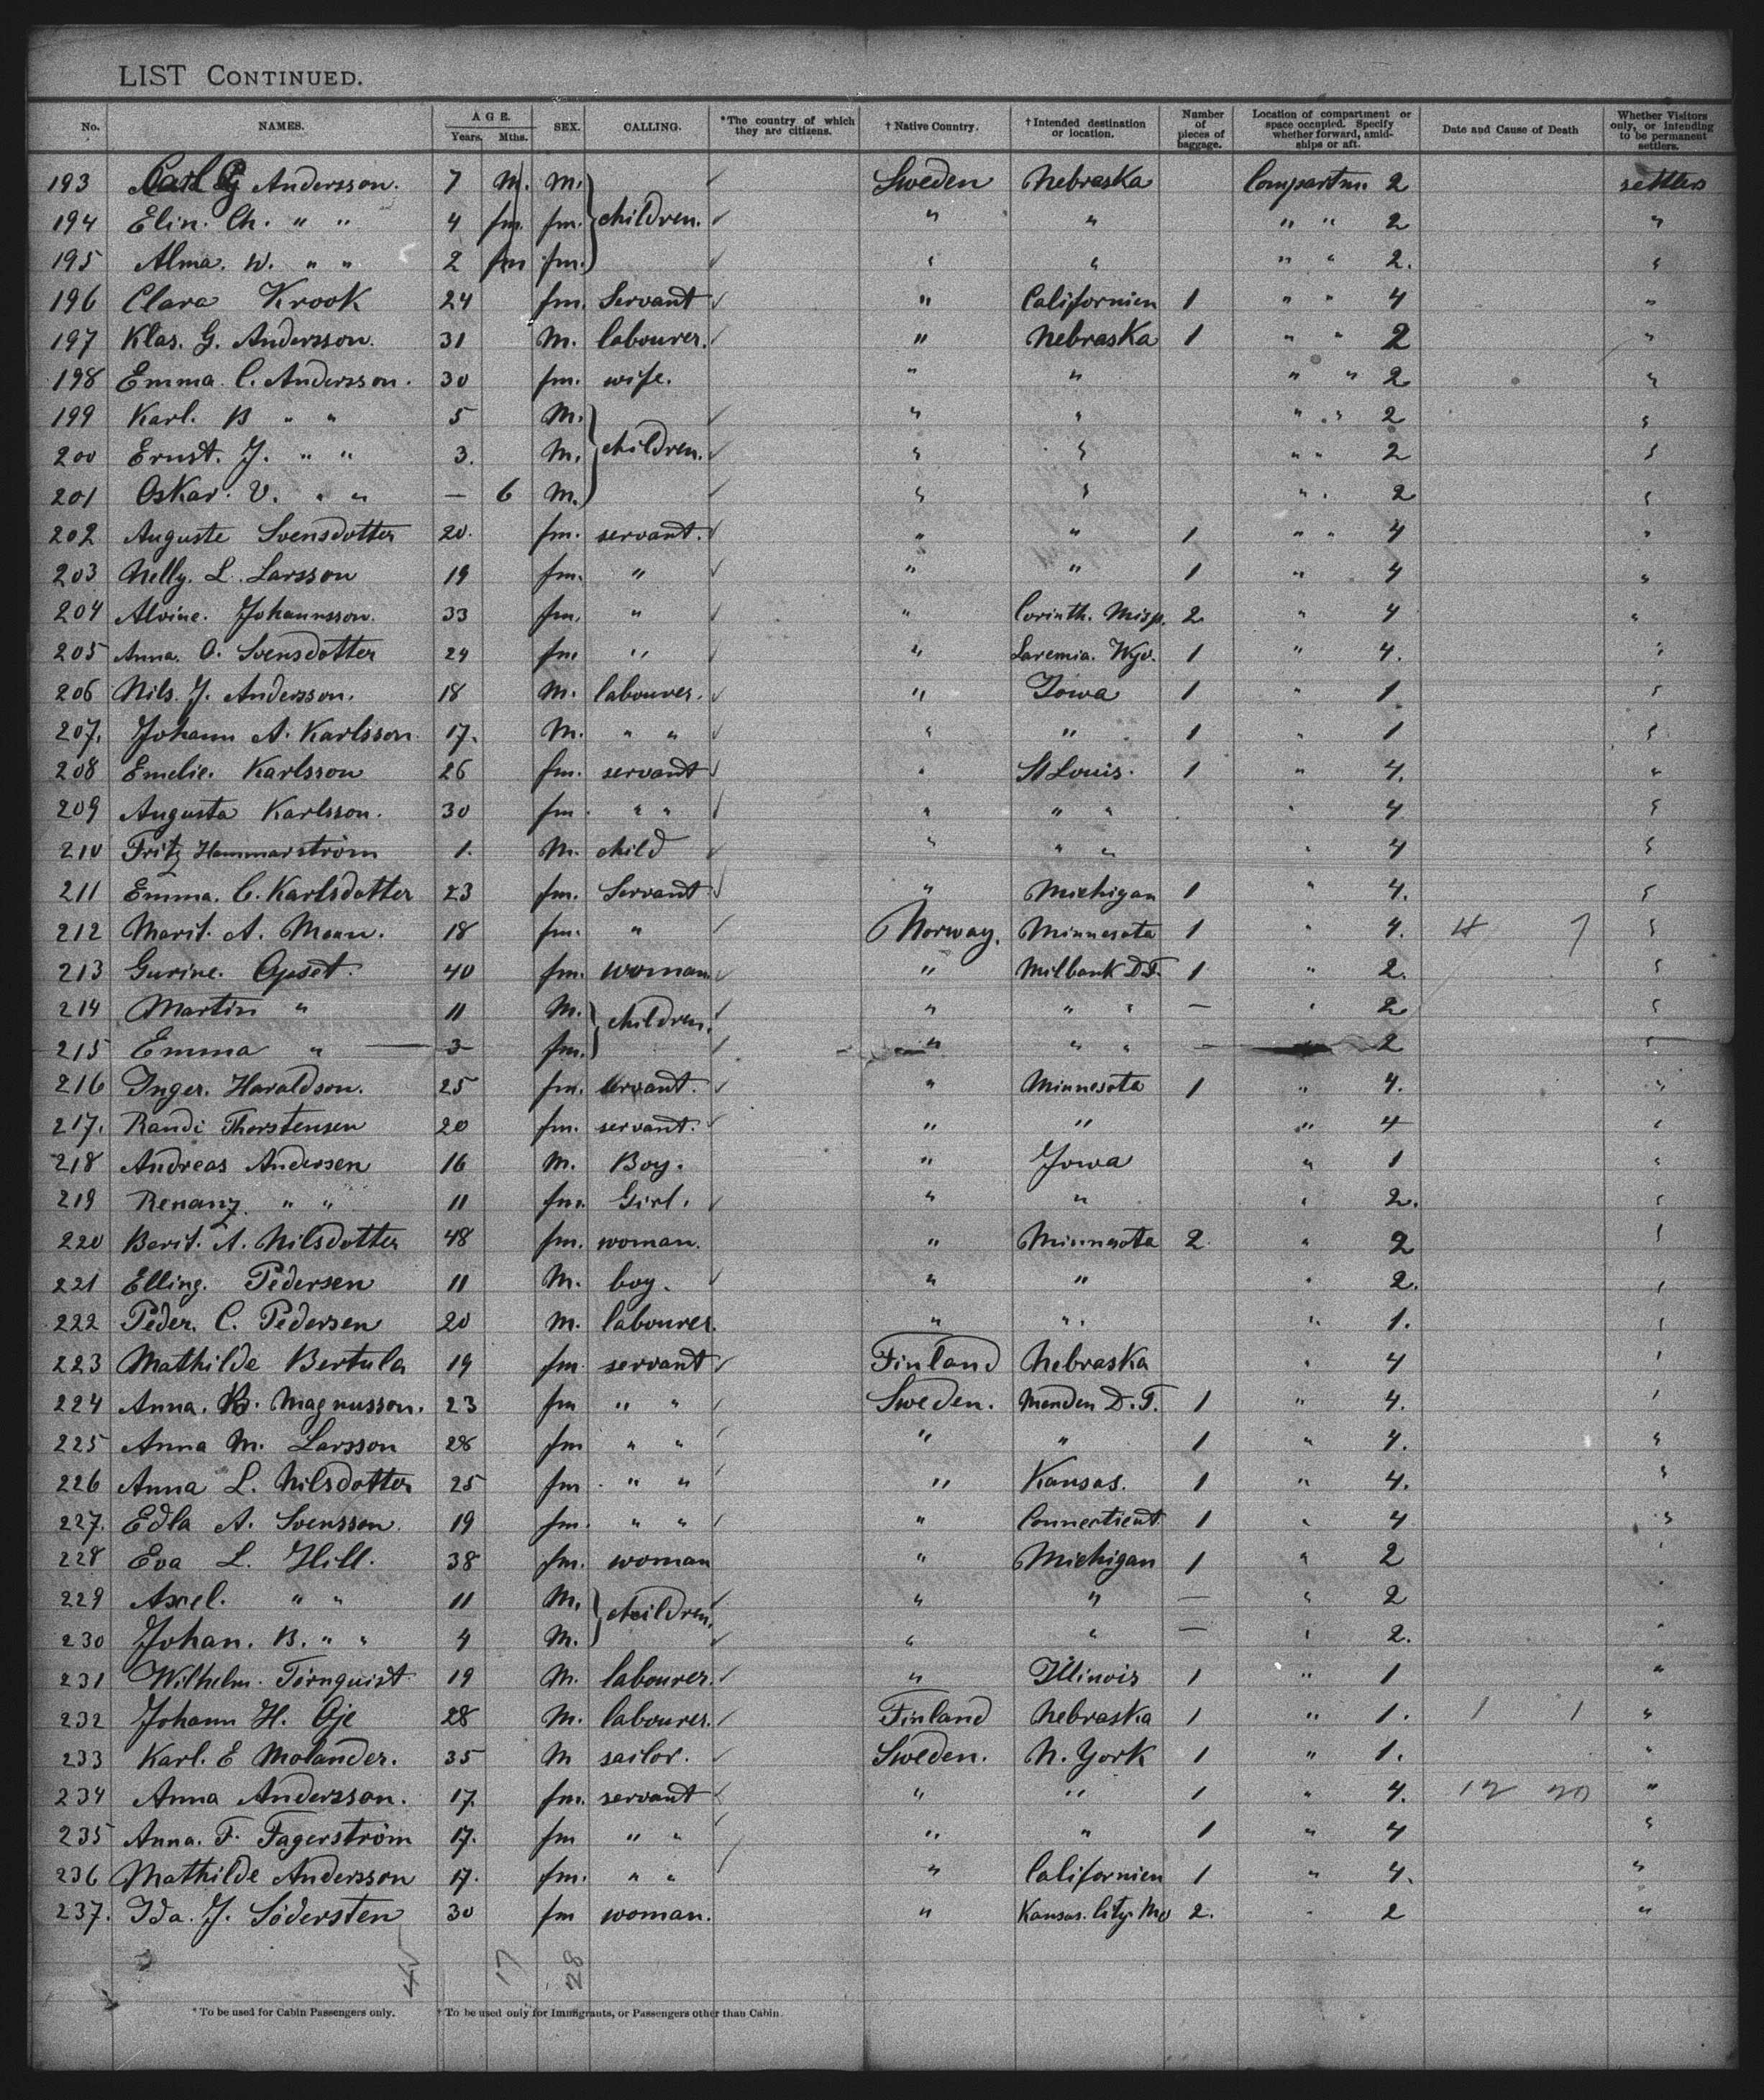 LIST CONTINUED.
No. NAMES. AGE. Years. Mths. SEX. CALLING. *The country of which they are citizens. † Native Country. † Intended destination or location. Number of pieces of baggage. Location of compartment or space occupied. Specify whether forward, amidships or aft. Date and Cause of Death Whether Visitors only, or intending to be permanent settlers.
193 Carl G Andersson. 7 M. M. ✓ Sweden Nebraska Compartm. 2 settlers
194 Elin. Ch. " " 4 fm. fm. children. ✓ " " " " 2 "
195 Alma. W. " " 2 fm fm. ✓ " " " " 2. "
196 Clara Krook 24 fm. Servant ✓ " Californien 1 " " 4 "
197 Klas. G. Andersson. 31 M. labourer. ✓ " Nebraska 1 " " 2 "
198 Emma C. Andersson. 30 fm. wife. " " " " 2 "
199 Karl. B " " 5 M. ✓ " " " " 2 "
200 Ernst. J. " " 3. M. children. ✓ " " " " 2 "
201 Oskar. V. " " — 6 M. ✓ " " " " 2 "
202 Auguste Svensdotter 20. fm. servant. ✓ " " 1 " " 4 "
203 Nelly. L. Larsson 19 fm. " ✓ " " 1 " 4 "
204 Alvine. Johannsson. 33 fm. " ✓ " Corinth. Misp. 2. " 4 "
205 Anna. O. Svensdotter 24 fm " ✓ " Laremia. Wyo. 1 " 4. "
206 Nils. J. Andersson. 18 M. labourer. ✓ " Iowa 1 " 1 "
207. Johann A. Karlsson. 17. M. " " ✓ " " 1 " 1 "
208 Emelie. Karlsson 26 fm. servant ✓ " St Louis. 1 " 4. "
209 Augusta Karlsson. 30 fm. " " ✓ " " " " 4 "
210 Fritz Hammarström 1. M. child ✓ " " " " 4 "
211 Emma. C. Karlsdotter 23 fm. Servant ✓ " Michigan 1 " 4. "
212 Marit. A. Moan. 18 fm. " ✓ Norway. Minnesota 1 " 4. 4 7 "
213 Gurine. Opset. 40 fm. woman ✓ " Milbank D.T. 1 " 2. "
214 Martin " 11 M. children. ✓ " " " — " 2 "
215 Emma " 3 fm. ✓ " " " — " 2 "
216 Inger. Haraldson. 25 fm. servant. ✓ " Minnesota 1 " 4. "
217. Randi Thorstensen 20 fm. servant. ✓ " " " 4 "
218 Andreas Andersen 16 M. Boy. " Iowa " 1 "
219 " " 11 fm. Girl. ✓ " " " 2. "
220 Berit. A. Nilsdotter 48 fm. woman. " Minnesota 2. " 2 "
221 Elling. Pedersen 11 M. boy. ✓ " " " 2. "
222 Peder. C. Pedersen 20 M. labourer. " " " 1. "
223 Mathilde Bertula 19 fm. servant ✓ Finland Nebraska " 4 "
224 Anna. B. Magnusson. 23 fm " " ✓ Sweden. Manden D.T. 1 " 4. "
225 Anna M. Larsson 28 fm " " ✓ " " 1 " 4. "
226 Anna L. Nilsdotter 25 fm " " ✓ " Kansas. 1 " 4. "
227. Edla A. Svensson. 19 fm. " " ✓ " Connecticut 1 " 4 "
228 Eva L. Hill. 38 fm. woman " Michigan 1 " 2 "
229 Axel. " " 11 M. children. ✓ " " — " 2 "
230 Johan. B. " " 4 M. ✓ " " — " 2. "
231 Wilhelm. Törnquist 19 M. labourer. ✓ " Illinois 1 " 1 "
232 Johann H. Oje 28 M. labourer. ✓ Finland Nebraska 1 " 1. 1 1 "
233 Karl. E Molander. 35 M sailor. ✓ Sweden. N. York 1 " 1. "
234 Anna Andersson. 17. fm. servant ✓ " " 1 " 4. 12 20 "
235 Anna. F. Fagerström 17. fm " " ✓ " " 1 " 4 "
236 Mathilde Andersson 17. fm. " " ✓ " Californien 1 " 4. "
237. Ida. J. Södersten 30 fm woman. " Kansas. City. Mo 2. " 2 "
17 28
* To be used for Cabin Passengers only. † To be used only for Immigrants, or Passengers other than Cabin.